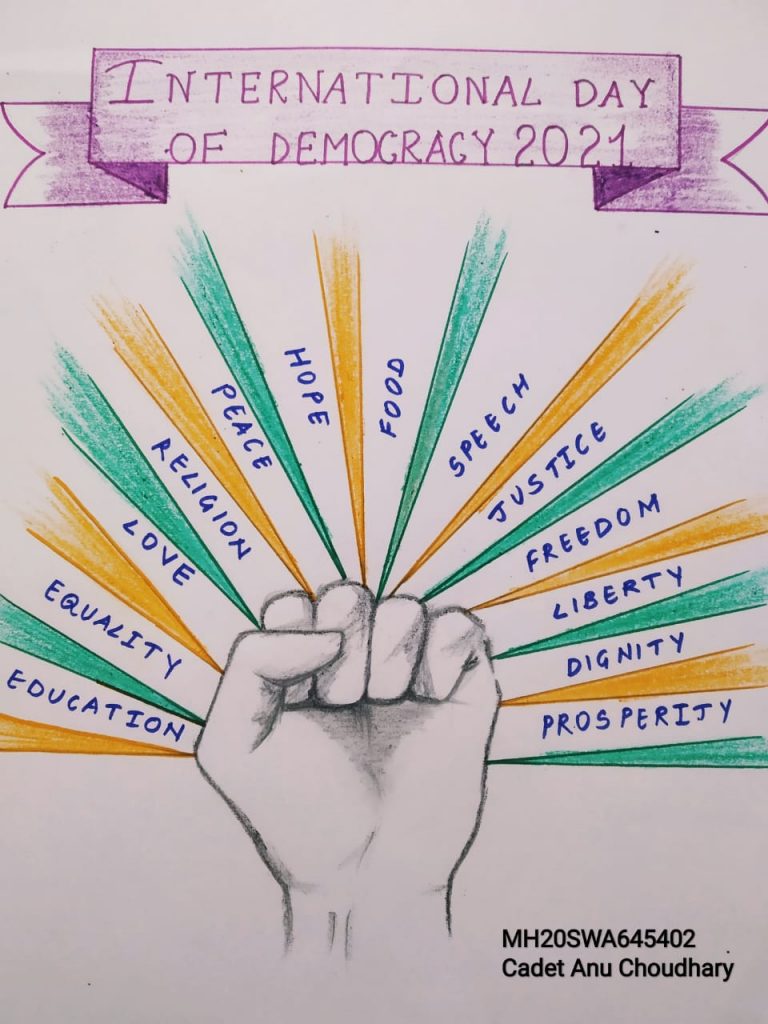 INTERNATIONAL DAY
OF DEMOCRACY 2021
EDUCATION
EQUALITY
LOVE
RELIGION
PEACE
HOPE
FOOD
SPEECH
JUSTICE
FREEDOM
LIBERTY
DIGNITY
PROSPERITY
MH20SWA645402
Cadet Anu Choudhary